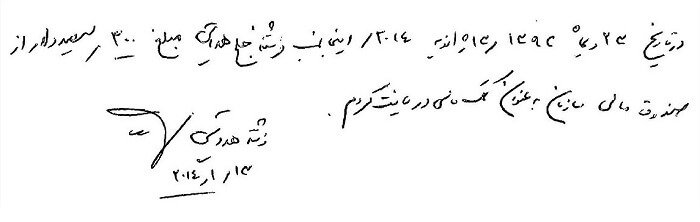 در تاریخ ۲۳ دیماه ۱۳۹۲ / ۱۳ ژانویه ۲۰۱۴ / اینجانب فرشته هدایتی مبلغ ۳۰۰ / سیصد دلار از
صندوق مالی سازمان به عنوان کمک مالی دریافت کردم.
فرشته هدایتی
۱۳ / ۱ / ۲۰۱۴